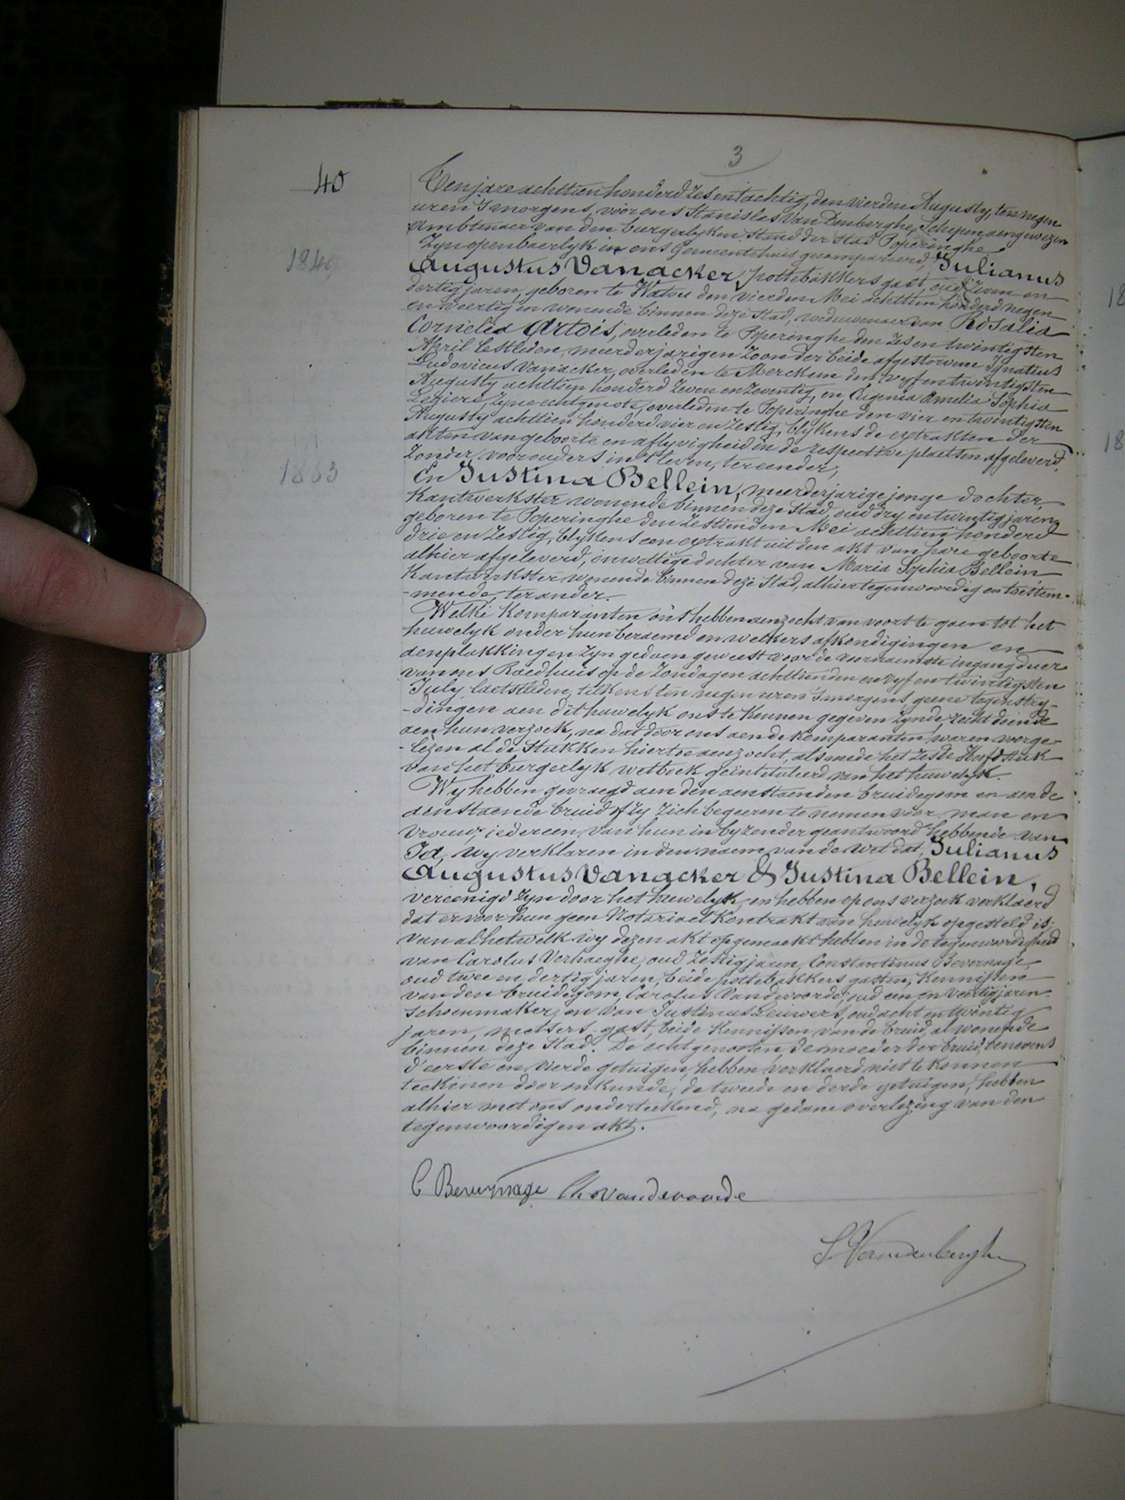 3
40
Ten jare achttien honderd zes en tachtig, den vierden Augusty, ten negen
uren s'morgens, voor ons Stanislas Van Denberghe, Schepen aengewezen
Ambtenaer van den burgerlyken Staed der Stad Poperinghe
Zyn openbaerlyk in ons Gemeentehuis gecompareerd, Julianus
1849
Augustus Vanacker, pottebakkers gast, oud zeven en
dertig jaren, geboren te Watou den vierden Mei achttien honderd negen
en veertig en wonende binnen deze Stad, weduwenaer van Rosalia
Cornelia Artois, overleden te Poperinghe den zes en twintigsten
April lestleden, meerderjarigen zoon der beide afgestorven Ignatius
Ludovicus Vanacker, overleden te Merckem den vyf en twintigsten
Augusty achttien honderd zeven en zeventig, en Eugenia Amelia Sophia
zyne echtgenote, overleden te Poperinghe den vier en twintigsten
Augusty achttien honderd vier en zestig, blykens de extrakten der
akten van geboorte en aflyvigheid in de respective plaetsen afgeleverd,
zonder voorouders in leven, ter eender,
1863
En Justina Bellein, meerderjarige jonge dochter,
Kantwerkster wonende binnen deze Stad, oud dry en twintig jaren,
geboren te Poperinghe den zestienden Mei achttien honderd
drie en zestig, blykens een extrakt uit den akt van hare geboorte
alhier afgeleverd, onwettige dochter van Maria Sophia Bellein
Kantwerkster wonende binnen deze Stad, alhier tegenwoordig en toestem-
-mende, ter ander.
Welke Komparanten ons hebben aenzocht van voort te gaen tot het
huwelyk onder hun beraemd en welkers afkondigingen en
aenplakkingen zyn gedaen geweest voor de voornaemste ingangdeur
van ons Raedhuis op de Zondagen achttienden en vyf en twintigsten
July laetstleden, telkens ten negen uren s'morgens geene tegenstry-
-dingen aen dit huwelyk ons te kennen gegeven zynde, recht doende
aen hun verzoek, na dat door ons aen de Komparanten waren voorge-
-lezen al de Stukken hiertoe aenzocht, alsmede het zesde Hoofdstuk
van het burgerlyk wetboek geintituleerd van het huwelyk.
Wy hebben gevraegd aen den aenstaenden bruidegom en aen de
aenstaende bruid of zy zich begeeren te nemen voor man en
vrouw iedereen van hun in byzonder geantwoord hebbende van
Ja, wy verklaren in den naem van de wet dat, Julianus
Augustus Vanacker & Justina Bellein,
vereenigd zyn door het huwelyk, en hebben op ons verzoek verklaerd
dat er voor hun geen Notariael Kontrakt van huwelyk opgesteld is;
van al hetwelk wy dezen akt opgemaekt hebben in de tegenwoordigheid
van Carolus Verhaeghe, oud zestig jaren, Constantinus Bevernage,
oud twee en dertig jaren, beide pottebakkers gasten, Kennissen
van den bruidegom, Carolus Vandevoorde, oud een en veertig jaren
Schoenmaker, en van Justinus Leuwers, oud acht en twintig
jaren, metsers gast, beide Kennissen van de bruid, al wonende
binnen deze Stad. De echtgenooten, de moeder der bruid, benevens
d'eerste en vierde getuigen, hebben verklaerd niet te kunnen
teekenen door onkunde, de tweede en derde getuigen, hebben
alhier met ons onderteekend, na gedane overlezing van den
tegenwoordigen akt.
C Bevernage Ch Vandevoorde
S. Vandenberghe